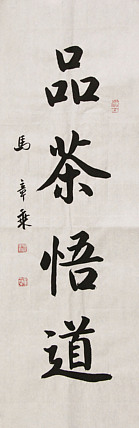 品茶悟道
馬章乘